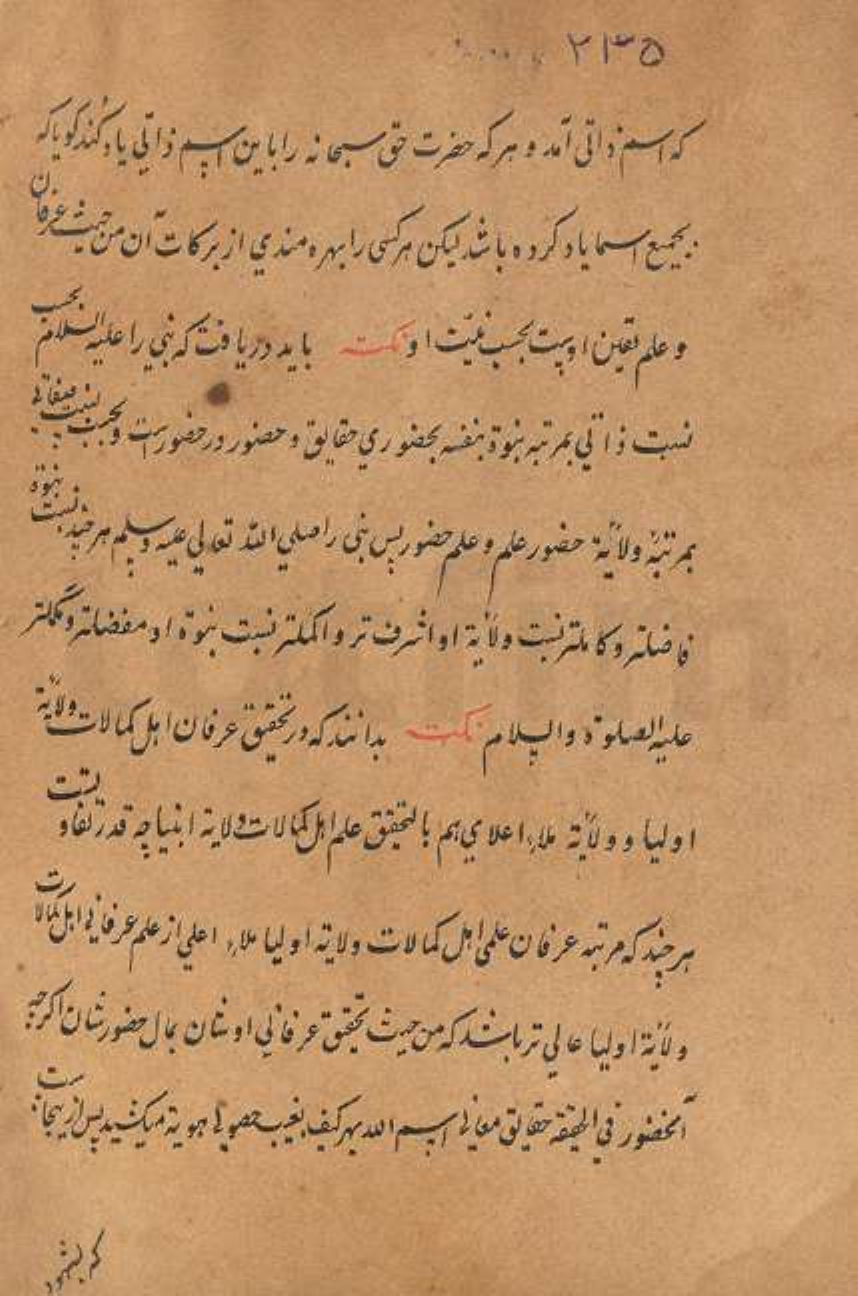 ۲۳۵
که اسم ذاتی آمد و هر که حضرت حق سبحانه را باین اسم ذاتی یاد کند کویا که
بجمیع اسما یاد کرده باشد لیکن هر کسی را بهره مندی از برکات آن من حیث عرفان
و علم تعین اوست بحسب نیّت او نکته باید دریافت که نبی را علیه السلام بحسب
نسبت ذاتی بمرتبه نبوة بنفسه بحضوری حقایق و حضور در حضورست و بحسب نسبت صفاتی
بمرتبهٔ ولایة حضور علم و علم حضور پس نبی را صلی الله تعالی علیه وسلم هر چند نسبت نبوة
فاضلتر و کاملتر نسبت ولایة او اشرف تر و اکملتر نسبت نبوة او مفضلتر و مکملتر
علیه الصلوة والسلام نکته بدانند که در تحقیق عرفان اهل کمالات ولایة
اولیا و ولایة ملاء اعلای هم بالتحقیق علم اهل کمالات ولایة انبیا چه قدر تفاوتست
هر چند که مرتبه عرفان علمی اهل کمالات ولایة اولیا ملاء اعلی از علم عرفانی اهل کمالات
ولایة اولیا عالی تر باشد که من حیث تحقیق عرفانی اوشان بمال حضور شان اکرچه
آنحضور فی الحقیقه حقایق معانی اسم الله بهر کیف بغیب هویة میکشید پس از ینجاست
که بشهود